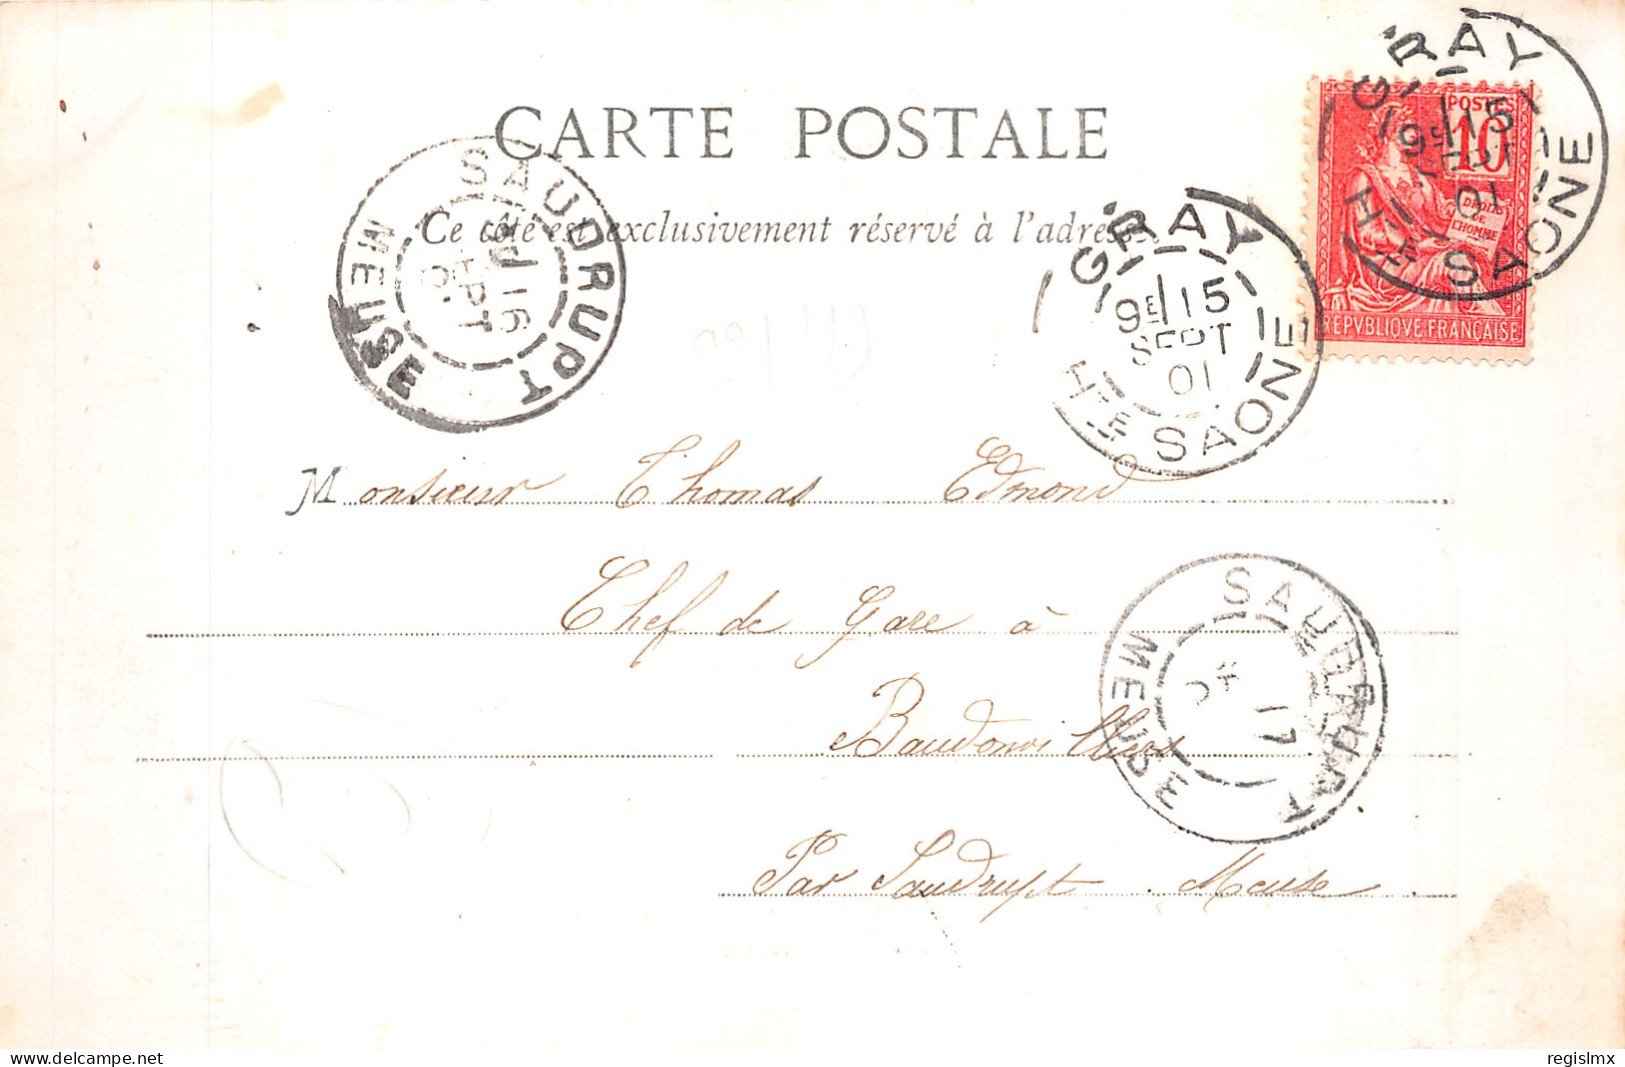 CARTE POSTALE
Ce côté est exclusivement réservé à l'adresse
GRAY
9E 15
SEPT
01
HTE SAONE
POSTES
10
DROITS
DE
L'HOMME
REPVBLIQVE FRANÇAISE
GRAY
9E 15
SEPT
01
HTE SAONE
SAUDRUPT
16
SEPT
MEUSE
Monsieur Thomas Edmond
Chef de Gare à
Baudonvilliers
Par Saudrupt Meuse
SAUDRUPT
17
MEUSE
www.delcampe.net
regislmx